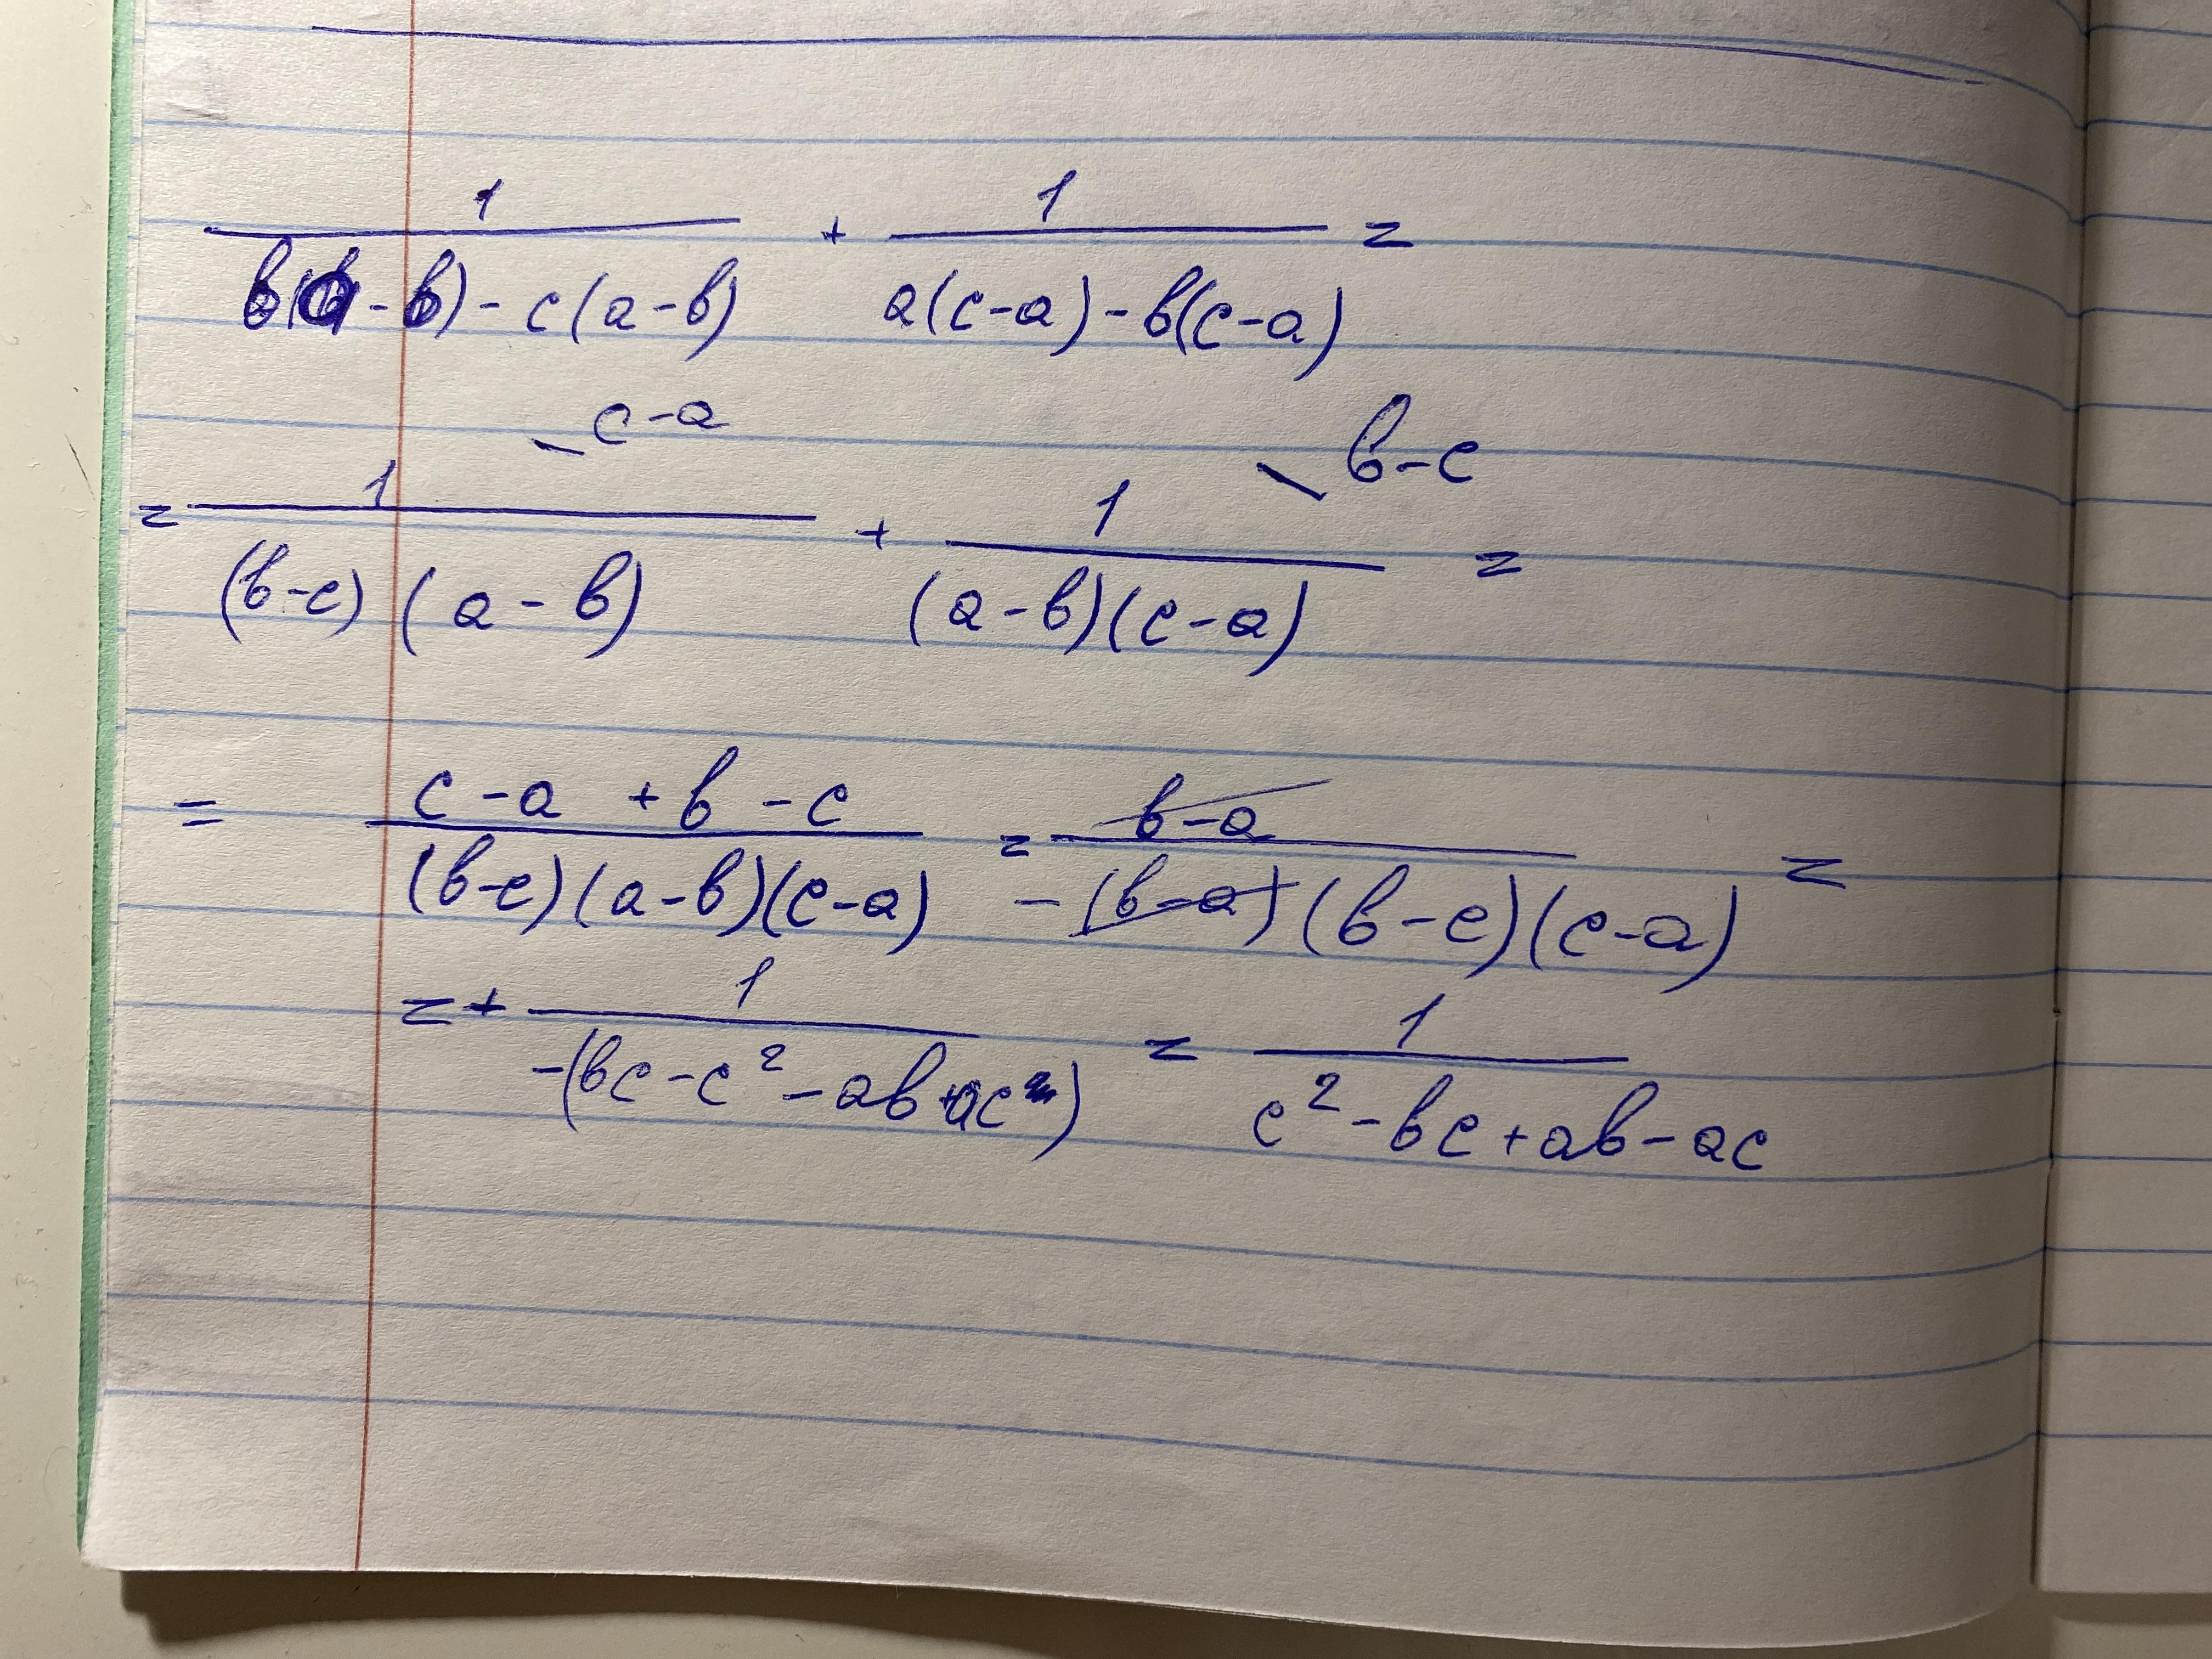 1/(b(a-b)-c(a-b)) + 1/(a(c-a)-b(c-a)) =
= 1/((b-c)(a-b)) \ c-a + 1/((a-b)(c-a)) \ b-c =
= (c-a+b-c)/((b-c)(a-b)(c-a)) = (b-a)/(-(b-a)(b-c)(c-a)) =
= + 1/(-(bc-c²-ab+ac)) = 1/(c²-bc+ab-ac)